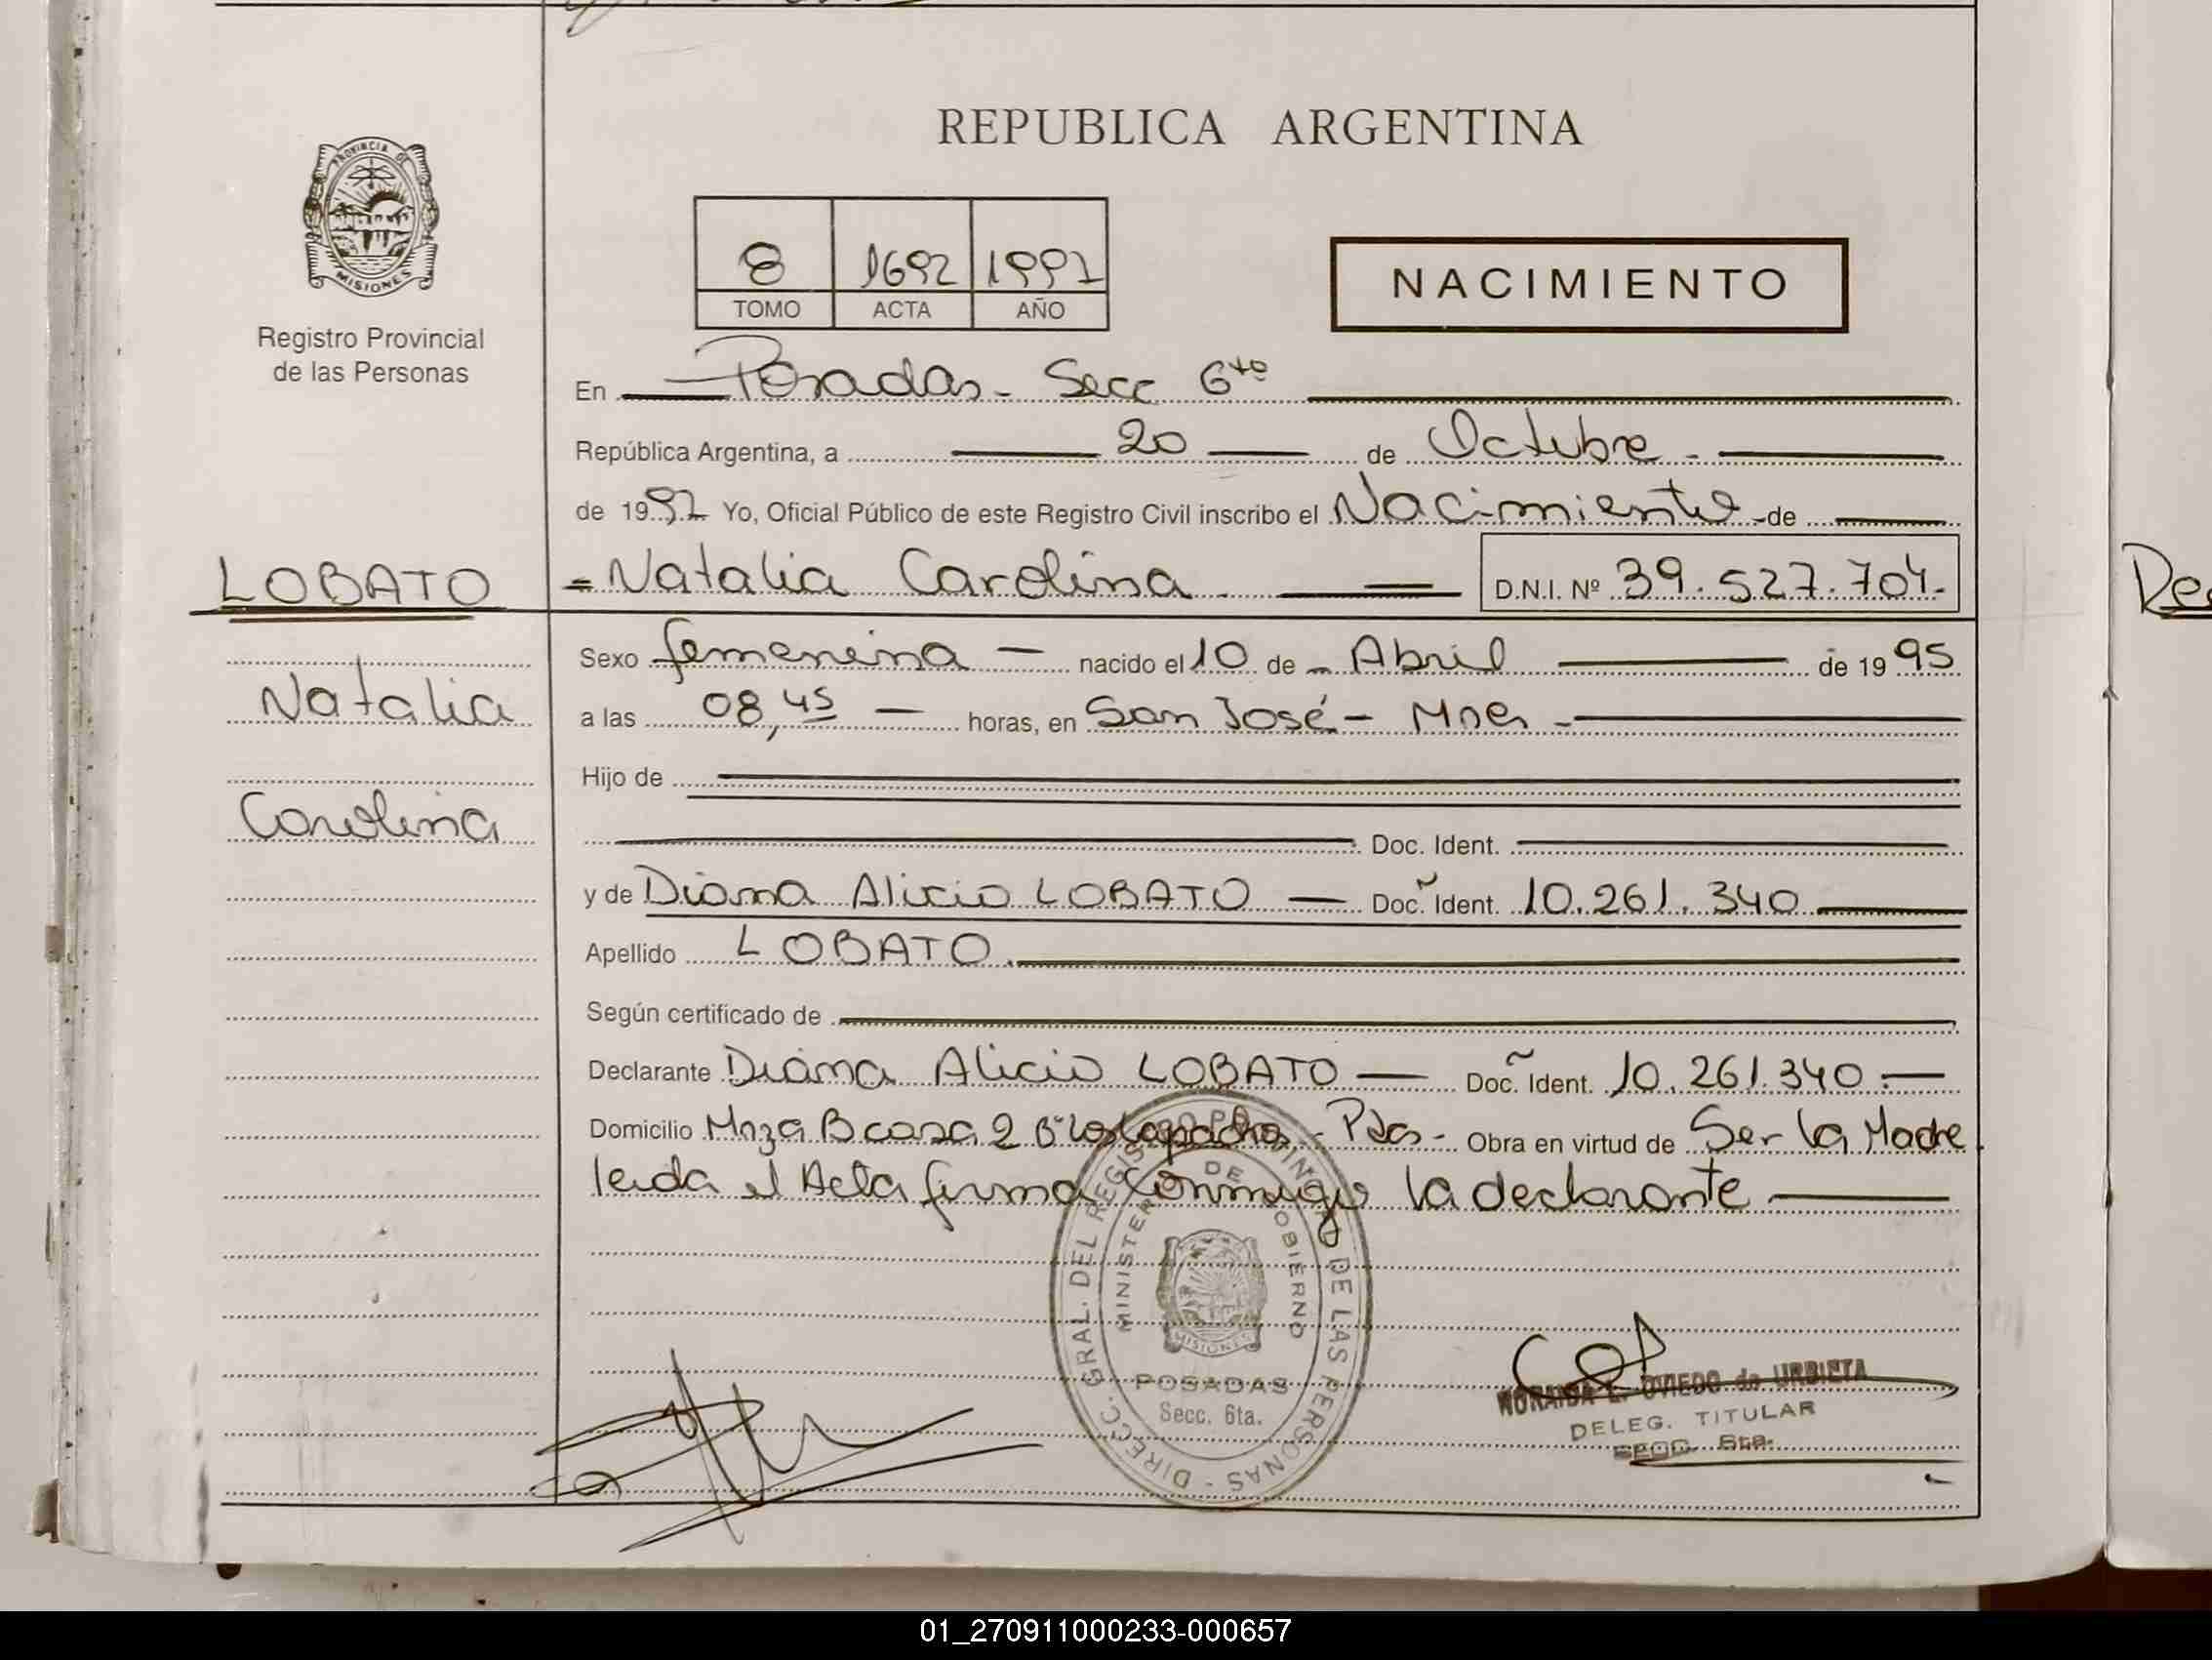 REPUBLICA ARGENTINA
PROVINCIA DE
MISIONES
Registro Provincial
de las Personas
8 1692 1997
TOMO ACTA AÑO
NACIMIENTO
En Posadas - Secc 6ta
República Argentina, a 20 de Octubre -
de 1997 Yo, Oficial Público de este Registro Civil inscribo el Nacimiento - de
LOBATO
Natalia
Carolina
= Natalia Carolina D.N.I. Nº 39.527.704.-
Sexo femenina - nacido el 10 de - Abril de 19 95
a las 08,45 - horas, en San José - Mnes -
Hijo de
Doc. Ident.
y de Diana Alicia LOBATO - Doc. Ident. 10.261.340
Apellido LOBATO.
Según certificado de
Declarante Diana Alicia LOBATO - Doc. Ident. 10.261.340.-
Domicilio Mnza B casa 2 Bº Los Lapachos - Pdas - Obra en virtud de Ser la Madre.
leida el Acta firma conmigo la declarante
DIRECC. GRAL. DEL REGISTRO PROVINCIAL DE LAS PERSONAS -
MINISTERIO DE GOBIERNO
MISIONES
POSADAS
Secc. 6ta.
NORAIDA E. OVIEDO de URBIETA
DELEG. TITULAR
SECC. 6ta.
01_270911000233-000657